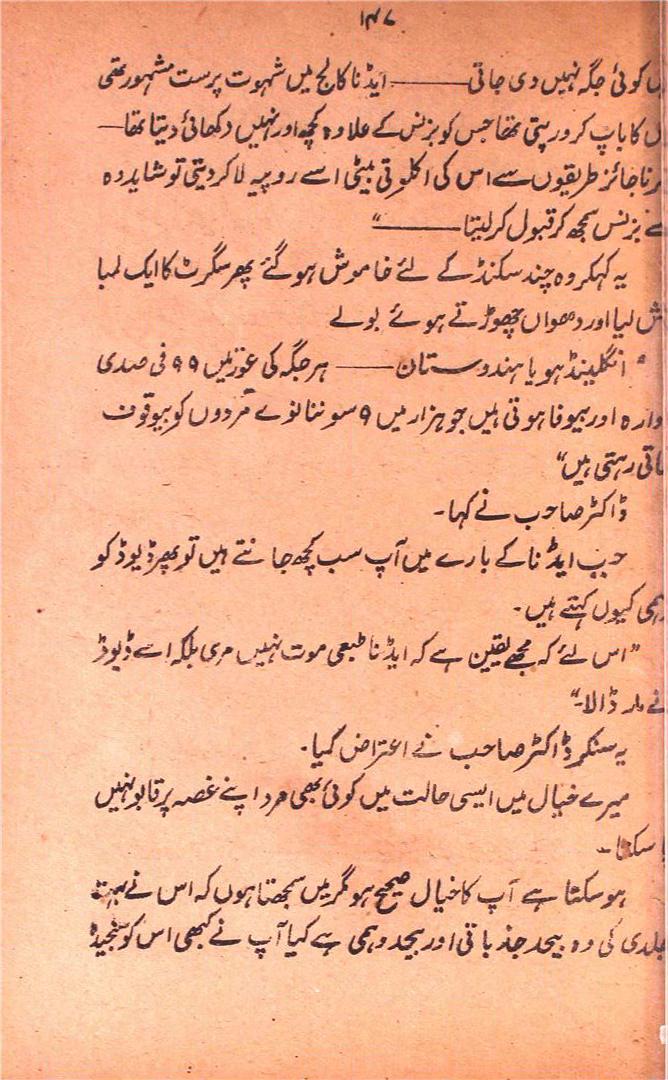 ۱۴۷
کوئی جگہ نہیں دی جاتی ——— ایڈنا کالج میں شہوت پرست مشہور تھی
کا باپ کروڑپتی تھا جس کو بزنس کے علاوہ کچھ اور نہیں دکھائی دیتا تھا —
ناجائز طریقوں سے اس کی اکلوتی بیٹی اسے روپیہ لا کر دیتی تو شاید وہ
بزنس سمجھ کر قبول کر لیتا ———"
یہ کہکر وہ چند سکنڈ کے لئے خاموش ہو گئے پھر سگرٹ کا ایک لمبا
لیا اور دھواں چھوڑتے ہوئے بولے
" انگلینڈ ہو یا ہندوستان —— ہر جگہ کی عورتیں ۹۹ فی صدی
وارہ اور بیوفا ہوتی ہیں جو ہزار میں ۹ سو ننانوے مردوں کو بیوقوف
رہتی ہیں"
ڈاکٹر صاحب نے کہا۔
جب ایڈنا کے بارے میں آپ سب کچھ جانتے ہیں تو پھر ڈیوڈ کو
کیوں کہتے ہیں۔
"اس لئے کہ مجھے یقین ہے کہ ایڈنا طبعی موت نہیں مری بلکہ اسے ڈیوڈ
نے مار ڈالا۔"
یہ سنکر ڈاکٹر صاحب نے اعتراض کیا۔
میرے خیال میں ایسی حالت میں کوئی بھی مرد اپنے غصہ پر قابو نہیں
سکتا۔
ہو سکتا ہے آپ کا خیال صحیح ہو مگر میں سمجھتا ہوں کہ اس نے بہت
جلدی کی وہ بیحد جذباتی اور بیحد وہمی ہے کیا آپ نے کبھی اس کو سنجیدہ